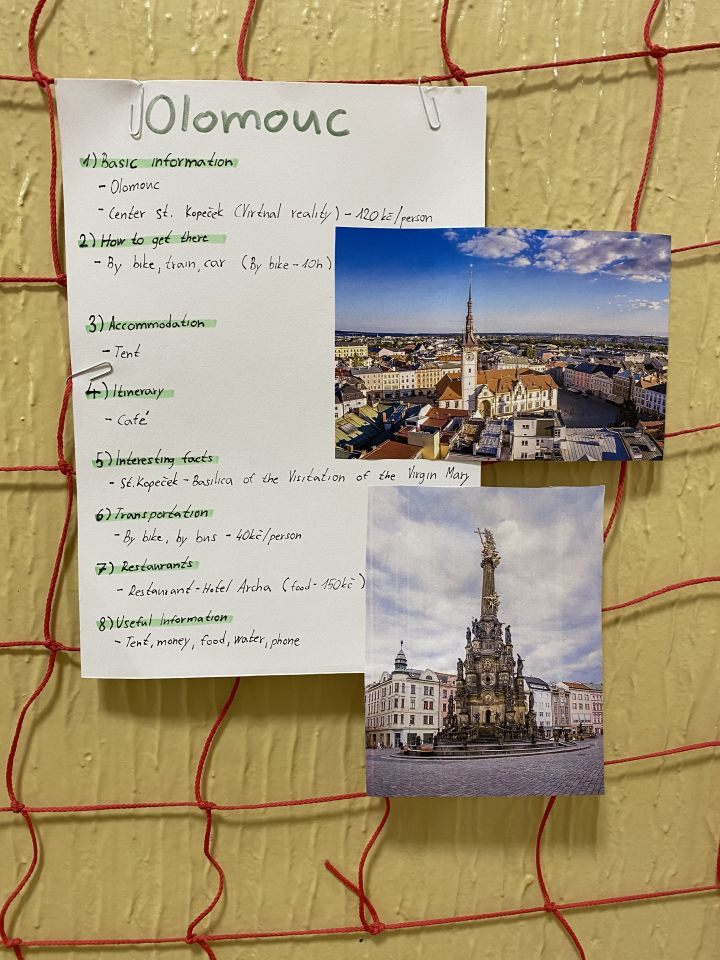 Olomouc
1) Basic information
- Olomouc
- Center St. Kopeček (Virtual reality) - 120 kč/person
2) How to get there
- By bike, train, car (By bike - 10h)
3) Accommodation
- Tent
4) Itinerary
- Café
5) Interesting facts
- St. Kopeček - Basilica of the Visitation of the Virgin Mary
6) Transportation
- By bike, by bus - 40kč/person
7) Restaurants
- Restaurant - Hotel Archa (food - 150kč)
8) Useful information
- Tent, money, food, water, phone